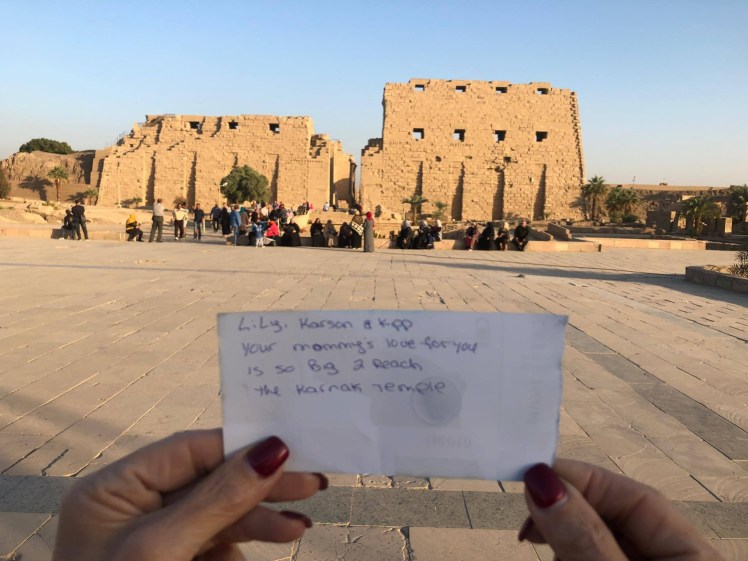 Lily, Karson & Kipp
your mommy's love for you
is so Big 2 Reach
the Karnak Temple